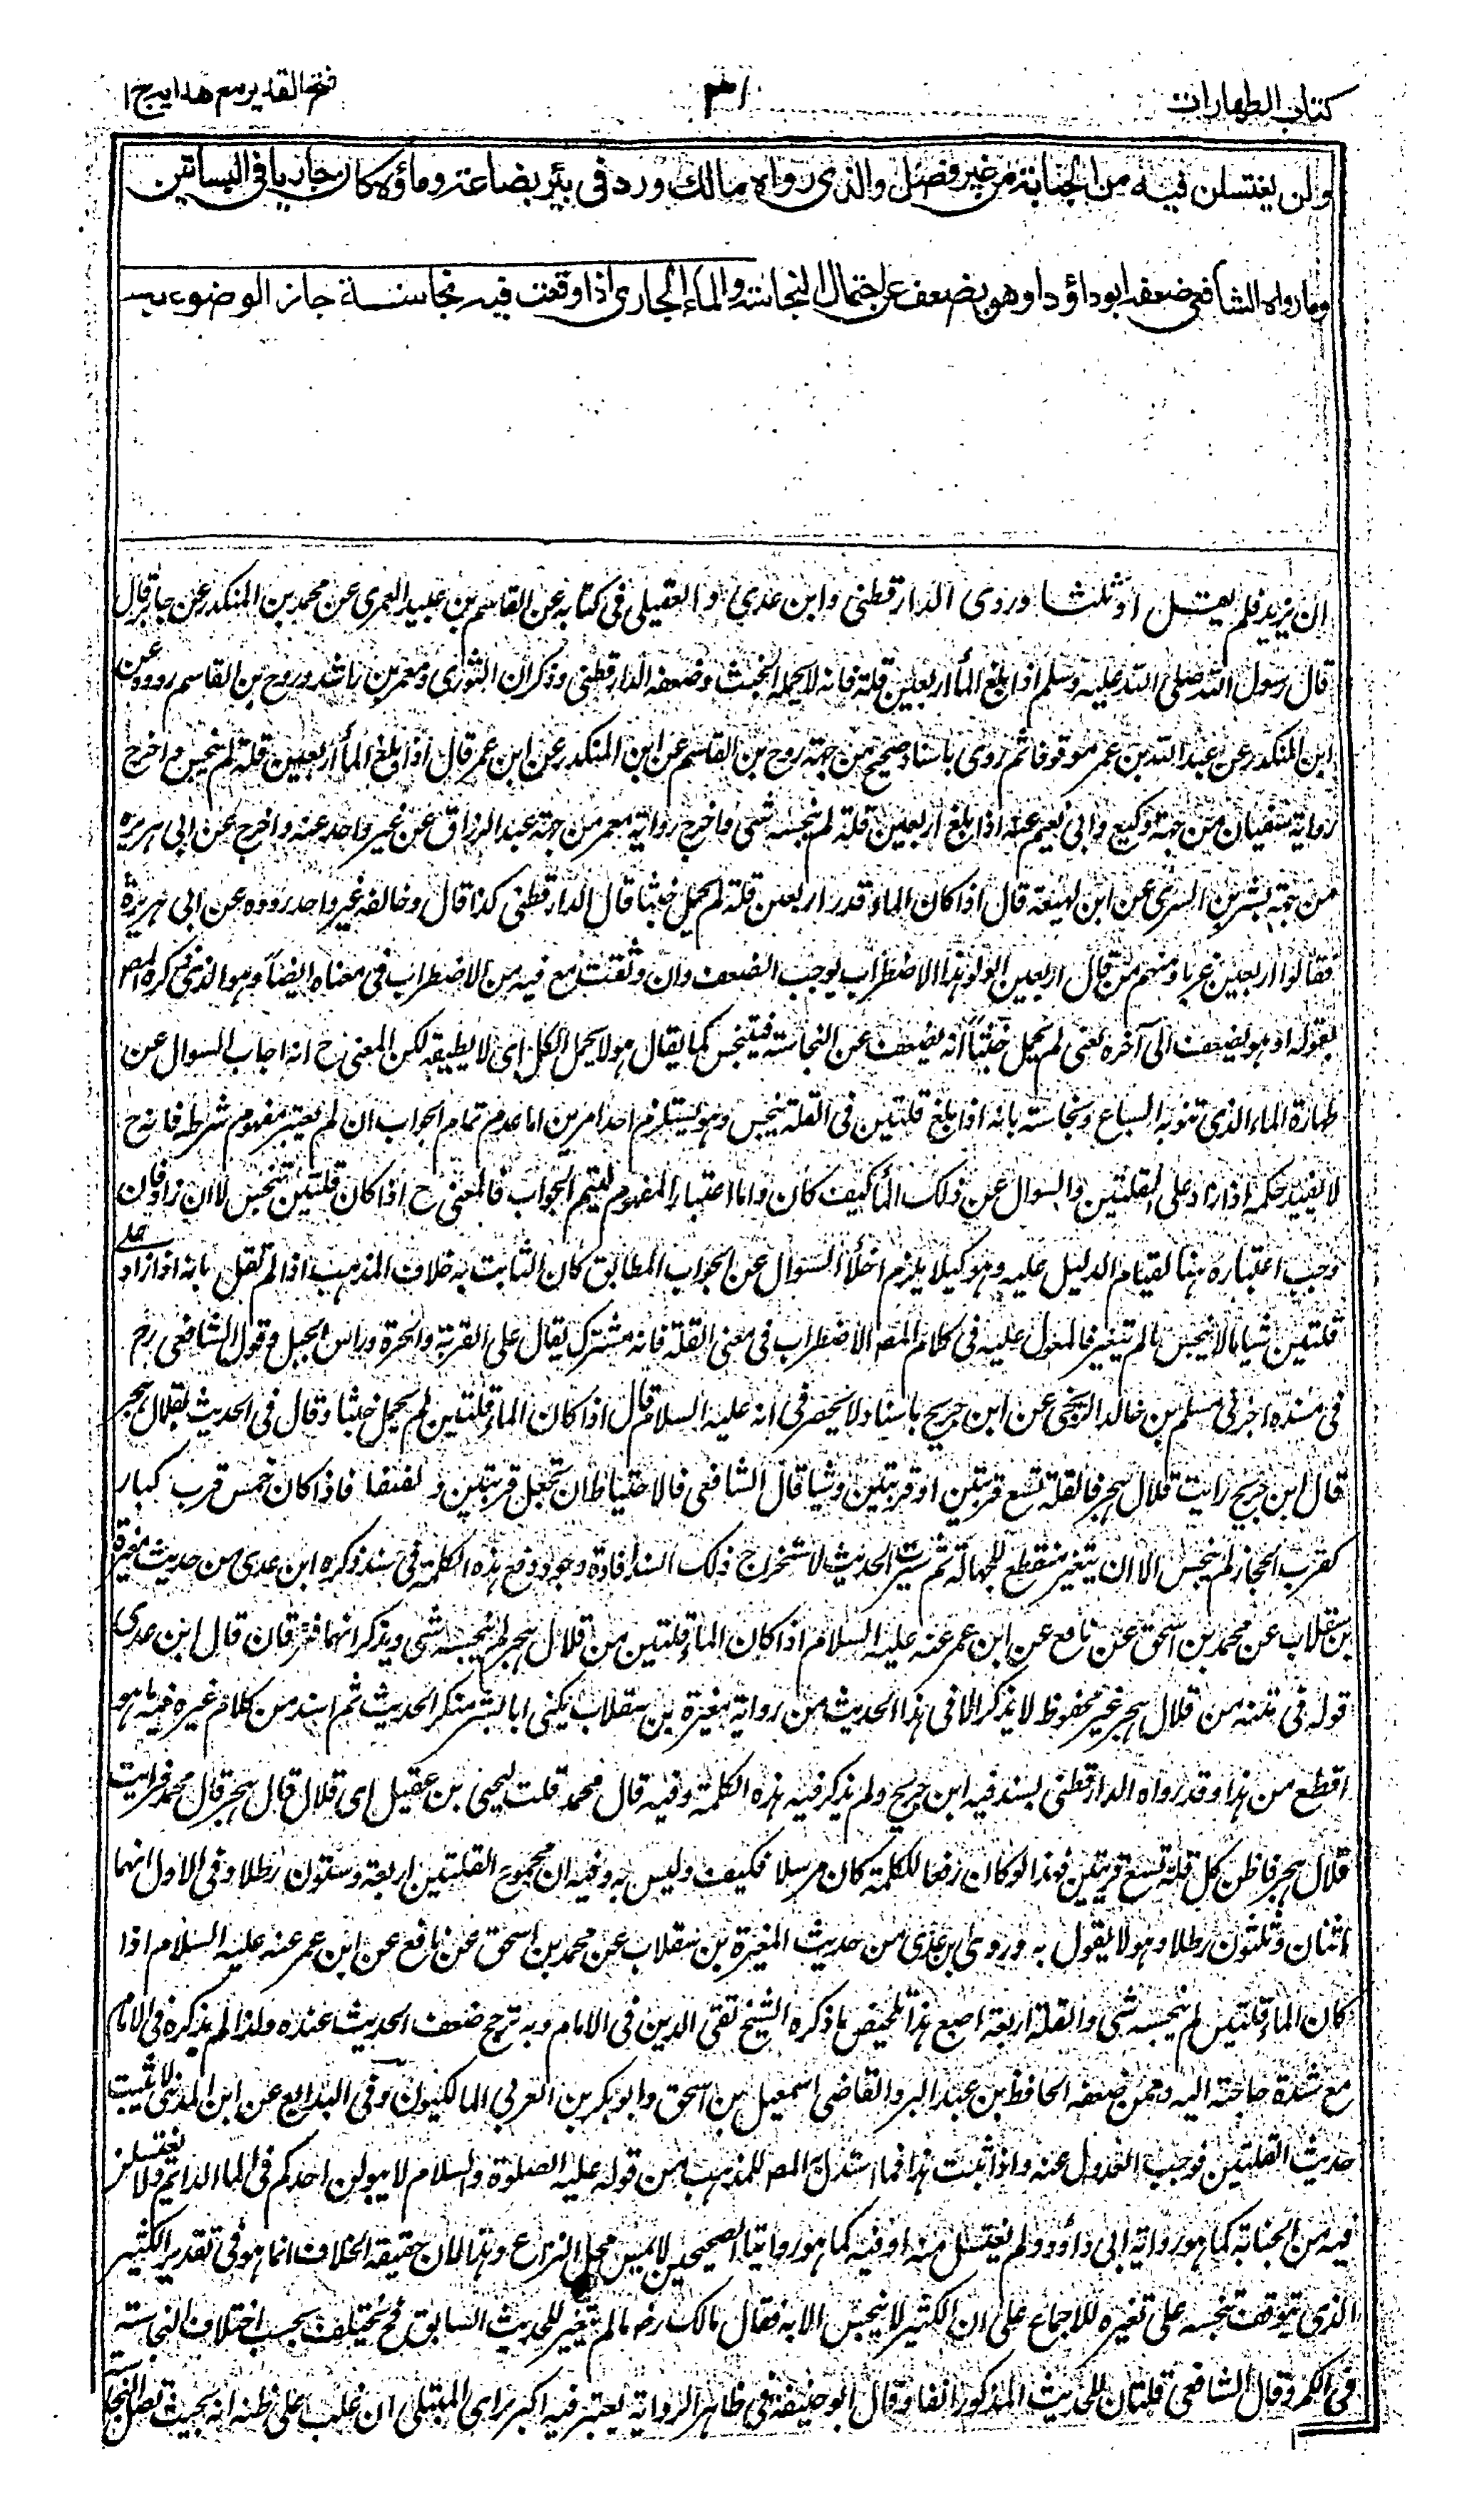 كتاب الطهارات
٣١
فتح القدير مع هدايہ ج ١
ولن يغتسلن فيه من الجنابة من غير فصل والذى رواه مالك ورد فى بئر بضاعة وماؤه كان جاريا فى البساتين
وما رواه الشافعى ضعفه ابو داؤد او هو يضعف عن احتمال النجاسة والماء الجارى اذا وقعت فيه نجاسة جاز الوضوء به
ابن يزيد فلم يقل او ثلثا وروى الدارقطنى وابن عدى والعقيلى فى كتابه عن القاسم بن عبيد العمرى عن محمد بن المنكدر عن جابر قال
قال رسول الله صلى الله عليه وسلم اذا بلغ الماء اربعين قلة فانه لا يحمل الخبث وضعفه الدارقطنى وذكر ان الثورى ومعمر بن راشد وروح بن القاسم رووه عن
ابن المنكدر عن عبد الله بن عمر موقوفا ثم روى باسناد صحيح من جهة روح بن القاسم عن ابن المنكدر عن ابن عمر قال اذا بلغ الماء اربعين قلة لم ينجس واخرج
رواية سفيان من جهة وكيع وابى نعيم عنه اذا بلغ اربعين قلة لم ينجسه شئ واخرج رواية معمر من جهة عبد الرزاق عن غير واحد عنه واخرج عن ابى هريرة
من جهة بشر بن السرى عن ابن لهيعة قال اذا كان الماء قدر اربعين قلة لم يحمل خبثا قال الدارقطنى كذا قال وخالفه غير واحد رووه عن ابى هريرة
فقالوا اربعين غربا ومنهم من قال اربعين دلوا وهذا الاضطراب يوجب الضعف وان وثقت مع فيه من الاضطراب فى معناه ايضا وهو الذى ذكره المص
بقوله او هو يضعف الى آخره يعنى لم يحمل خبثا انه يضعف عن النجاسة فيتنجس كما يقال هو لا يحمل الكل اى لا يطيقه لكن المعنى ح انه اجاب السوال عن
طهارة الماء الذى تنوبه السباع ونجاسته بانه اذا بلغ قلتين فى القلة ينجس وهو يستلزم احد امرين اما عدم تمام الجواب ان لم يعتبر مفهوم شرطه فانه ح
لا يفيد حكمه اذا زاد على القلتين والسوال عن ذلك الماء كيف كان واما اعتبار المفهوم ليتم الجواب فالمعنى ح اذا كان قلتين تنجس لا ان زاد فان
وجب اعتباره هنا لقيام الدليل عليه وهو كيلا يلزم اخلاء السؤال عن الجواب المطابق كان الثابت به خلاف المذهب اذ لم نقل بانه اذا زاد على
قلتين شيئا ما لا ينجس ما لم يتغير فالمعول عليه فى كلام المص الاضطراب فى معنى القلة فانه مشترك يقال على القربة والجرة وراس الجبل وقول الشافعى رح
فى مسنده اخبرنى مسلم بن خالد الزنجى عن ابن جريج باسناد لا يحضرنى انه عليه السلام قال اذا كان الماء قلتين لم يحمل خبثا وقال فى الحديث بقلال هجر
قال ابن جريج رايت قلال هجر فالقلة تسع قربتين او قربتين وشيئا قال الشافعى فالاحتياط ان تجعل قربتين ونصفا فاذا كان خمس قرب كبار
كقرب الحجاز لم ينجس الا ان يتغير منقطع للجهالة ثم سبرت الحديث لاستخراج ذلك السند افادة وجود رفع هذه الكلمة فى سند ذكره ابن عدى من حديث مغيرة
بن سقلاب عن محمد بن اسحق عن نافع عن ابن عمر عنه عليه السلام اذا كان الماء قلتين من قلال هجر لم ينجسه شئ ويذكر انهما فرقان قال ابن عدى
قوله فى متنه من قلال هجر غير محفوظ لا يذكر الا فى هذا الحديث من رواية مغيرة بن سقلاب يكنى ابا البشر منكر الحديث ثم اسند من كلام غيره فيه ما هو
اقطع من هذا وقد رواه الدارقطنى بسند فيه ابن جريج ولم يذكر فيه هذه الكلمة وفيه قال محمد قلت ليحيى بن عقيل اى قلال قال هجر قال محمد فرايت
قلال هجر فاظن كل قلة تسع قربتين فهذا لو كان رفعا للكلمة كان مرسلا فكيف وليس به وفيه ان مجموع القلتين اربعة وستون رطلا وفى الاول انهما
اثنان وثلثون رطلا وهو لا يقول به وروى ابن عدى من حديث المغيرة بن سقلاب عن محمد بن اسحق عن نافع عن ابن عمر عنه عليه السلام اذا
كان الماء قلتين لم ينجسه شئ والقلة اربعة اصع هذا تلخيص ما ذكره الشيخ تقى الدين فى الامام وبه ترجح ضعف الحديث عنده ولذا لم يذكره فى الالمام
مع شدة حاجته اليه وممن ضعفه الحافظ بن عبد البر والقاضى اسمعيل بن اسحق وابو بكر بن العربى المالكيون وفى البدائع عن ابن المدينى لا يثبت
حديث القلتين فوجب العدول عنه واذا ثبت هذا فما استدل به المص للمذهب من قوله عليه الصلوة والسلام لا يبولن احدكم فى الماء الدائم ولا يغتسلن
فيه من الجنابة كما هو رواية ابى داؤد ولم يغتسل منه او فيه كما هو روايتا الصحيحين لا يمس محل النزاع وهذا لان حقيقة الخلاف انما هو فى تقدير الكثير
الذى يتوقف تنجسه على تغيره للاجماع على ان الكثير لا ينجس الا به فقال مالك رحه ما لم يتغير للحديث السابق فح يختلف بحسب اختلاف النجاسة
فى الكم وقال الشافعى قلتان للحديث المذكور انفا وقال ابو حنيفة فى ظاهر الرواية يعتبر فيه اكبر راى المبتلى ان غلب على ظنه انه بحيث تصل النجاسة